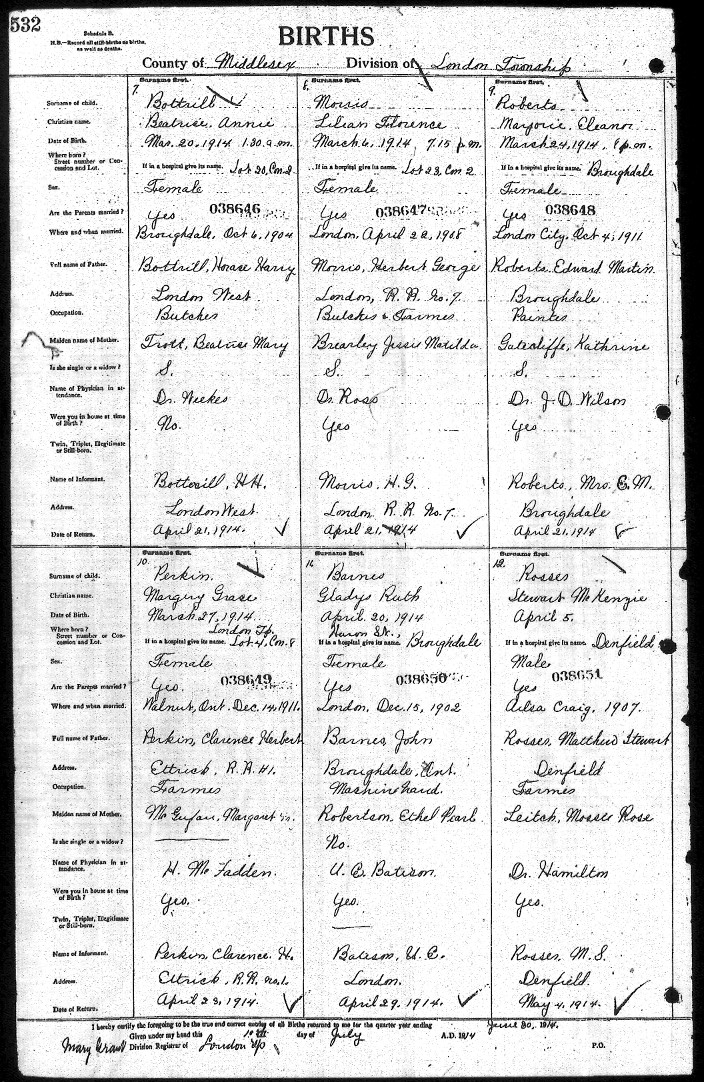 532
Schedule B.
N.B.—Record all still-births as births, as well as deaths.
BIRTHS
County of Middlesex Division of London Township
Surname first. Surname first. Surname first.
7. 8. 9.
Surname of child. Bottrill Morris Roberts
Christian name. Beatrice Annie Lilian Florence Marjorie Eleanor
Date of Birth. Mar. 20, 1914 1.30 a.m. March 6, 1914 7.15 p.m. March 24, 1914. 8 p.m.
Where born? Street number or Concession and Lot. If in a hospital give its name. Lot 20, Con 2 If in a hospital give its name. Lot 23, Con 2 If in a hospital give its name. Broughdale
Sex. Female Female Female
038646 038647 038648
Are the Parents married? Yes Yes Yes
Where and when married. Broughdale, Oct 6, 1904 London, April 22, 1908 London City, Oct 4, 1911
Full name of Father. Bottrill, Horase Harry Morris, Herbert George Roberts, Edward Martin
Address. London West London, R.R. No. 7 Broughdale
Occupation. Butcher Butcher & Farmer Painter
Maiden name of Mother. Trott, Beatrise Mary Brearley Jessie Matilda Gatecliffe, Kathrine
Is she single or a widow? S. S. S.
Name of Physician in attendance. Dr. Weekes Dr. Ross Dr. J. D. Wilson
Were you in house at time of Birth? No. Yes Yes
Twin, Triplet, Illegitimate or Still-born.
Name of Informant. Bottrill, H.H. Morris, H.G. Roberts, Mrs. E. M.
Address. London West London R.R. No. 7. Broughdale
Date of Return. April 21, 1914. April 21, 1914 April 21, 1914
Surname first. Surname first. Surname first.
10. 11. 12.
Surname of child. Perkin. Barnes Rosser
Christian name. Margury Grase Gladys Ruth Stewart McKenzie
Date of Birth. March 27, 1914. April 20, 1914 April 5.
Where born? Street number or Concession and Lot. London Tp. If in a hospital give its name. Lot 4, Con. 8 Huron St., If in a hospital give its name. Broughdale If in a hospital give its name. Denfield
Sex. Female Female Male
038649 038650 038651
Are the Parents married? Yes. Yes Yes
Where and when married. Walnut, Ont. Dec. 14, 1911. London, Dec. 15, 1902 Ailsa Craig, 1907.
Full name of Father. Perkin, Clarence Herbert Barnes, John Rosser, Matthew Stewart
Address. Ettrick, R.R. #1. Broughdale, Ont. Denfield
Occupation. Farmer Machine hand. Farmer
Maiden name of Mother. Margaret Robertson, Ethel Pearl Leitch, Rose
Is she single or a widow? No.
Name of Physician in attendance. H. McFadden. U. E. Bateson. Dr. Hamilton
Were you in house at time of Birth? Yes. Yes. Yes.
Twin, Triplet, Illegitimate or Still-born.
Name of Informant. Perkin, Clarence. H. Bateson, U. E. Rosser, M. S.
Address. Ettrick, R.R. No. 1. London. Denfield.
Date of Return. April 23, 1914. April 29, 1914. May 4, 1914.
I hereby certify the foregoing to be the true and correct entries of all Births returned to me for the quarter year ending June 30, 1914.
Given under my hand this day of July A.D. 1914
Mary Grant Division Registrar of London Tp P.O.